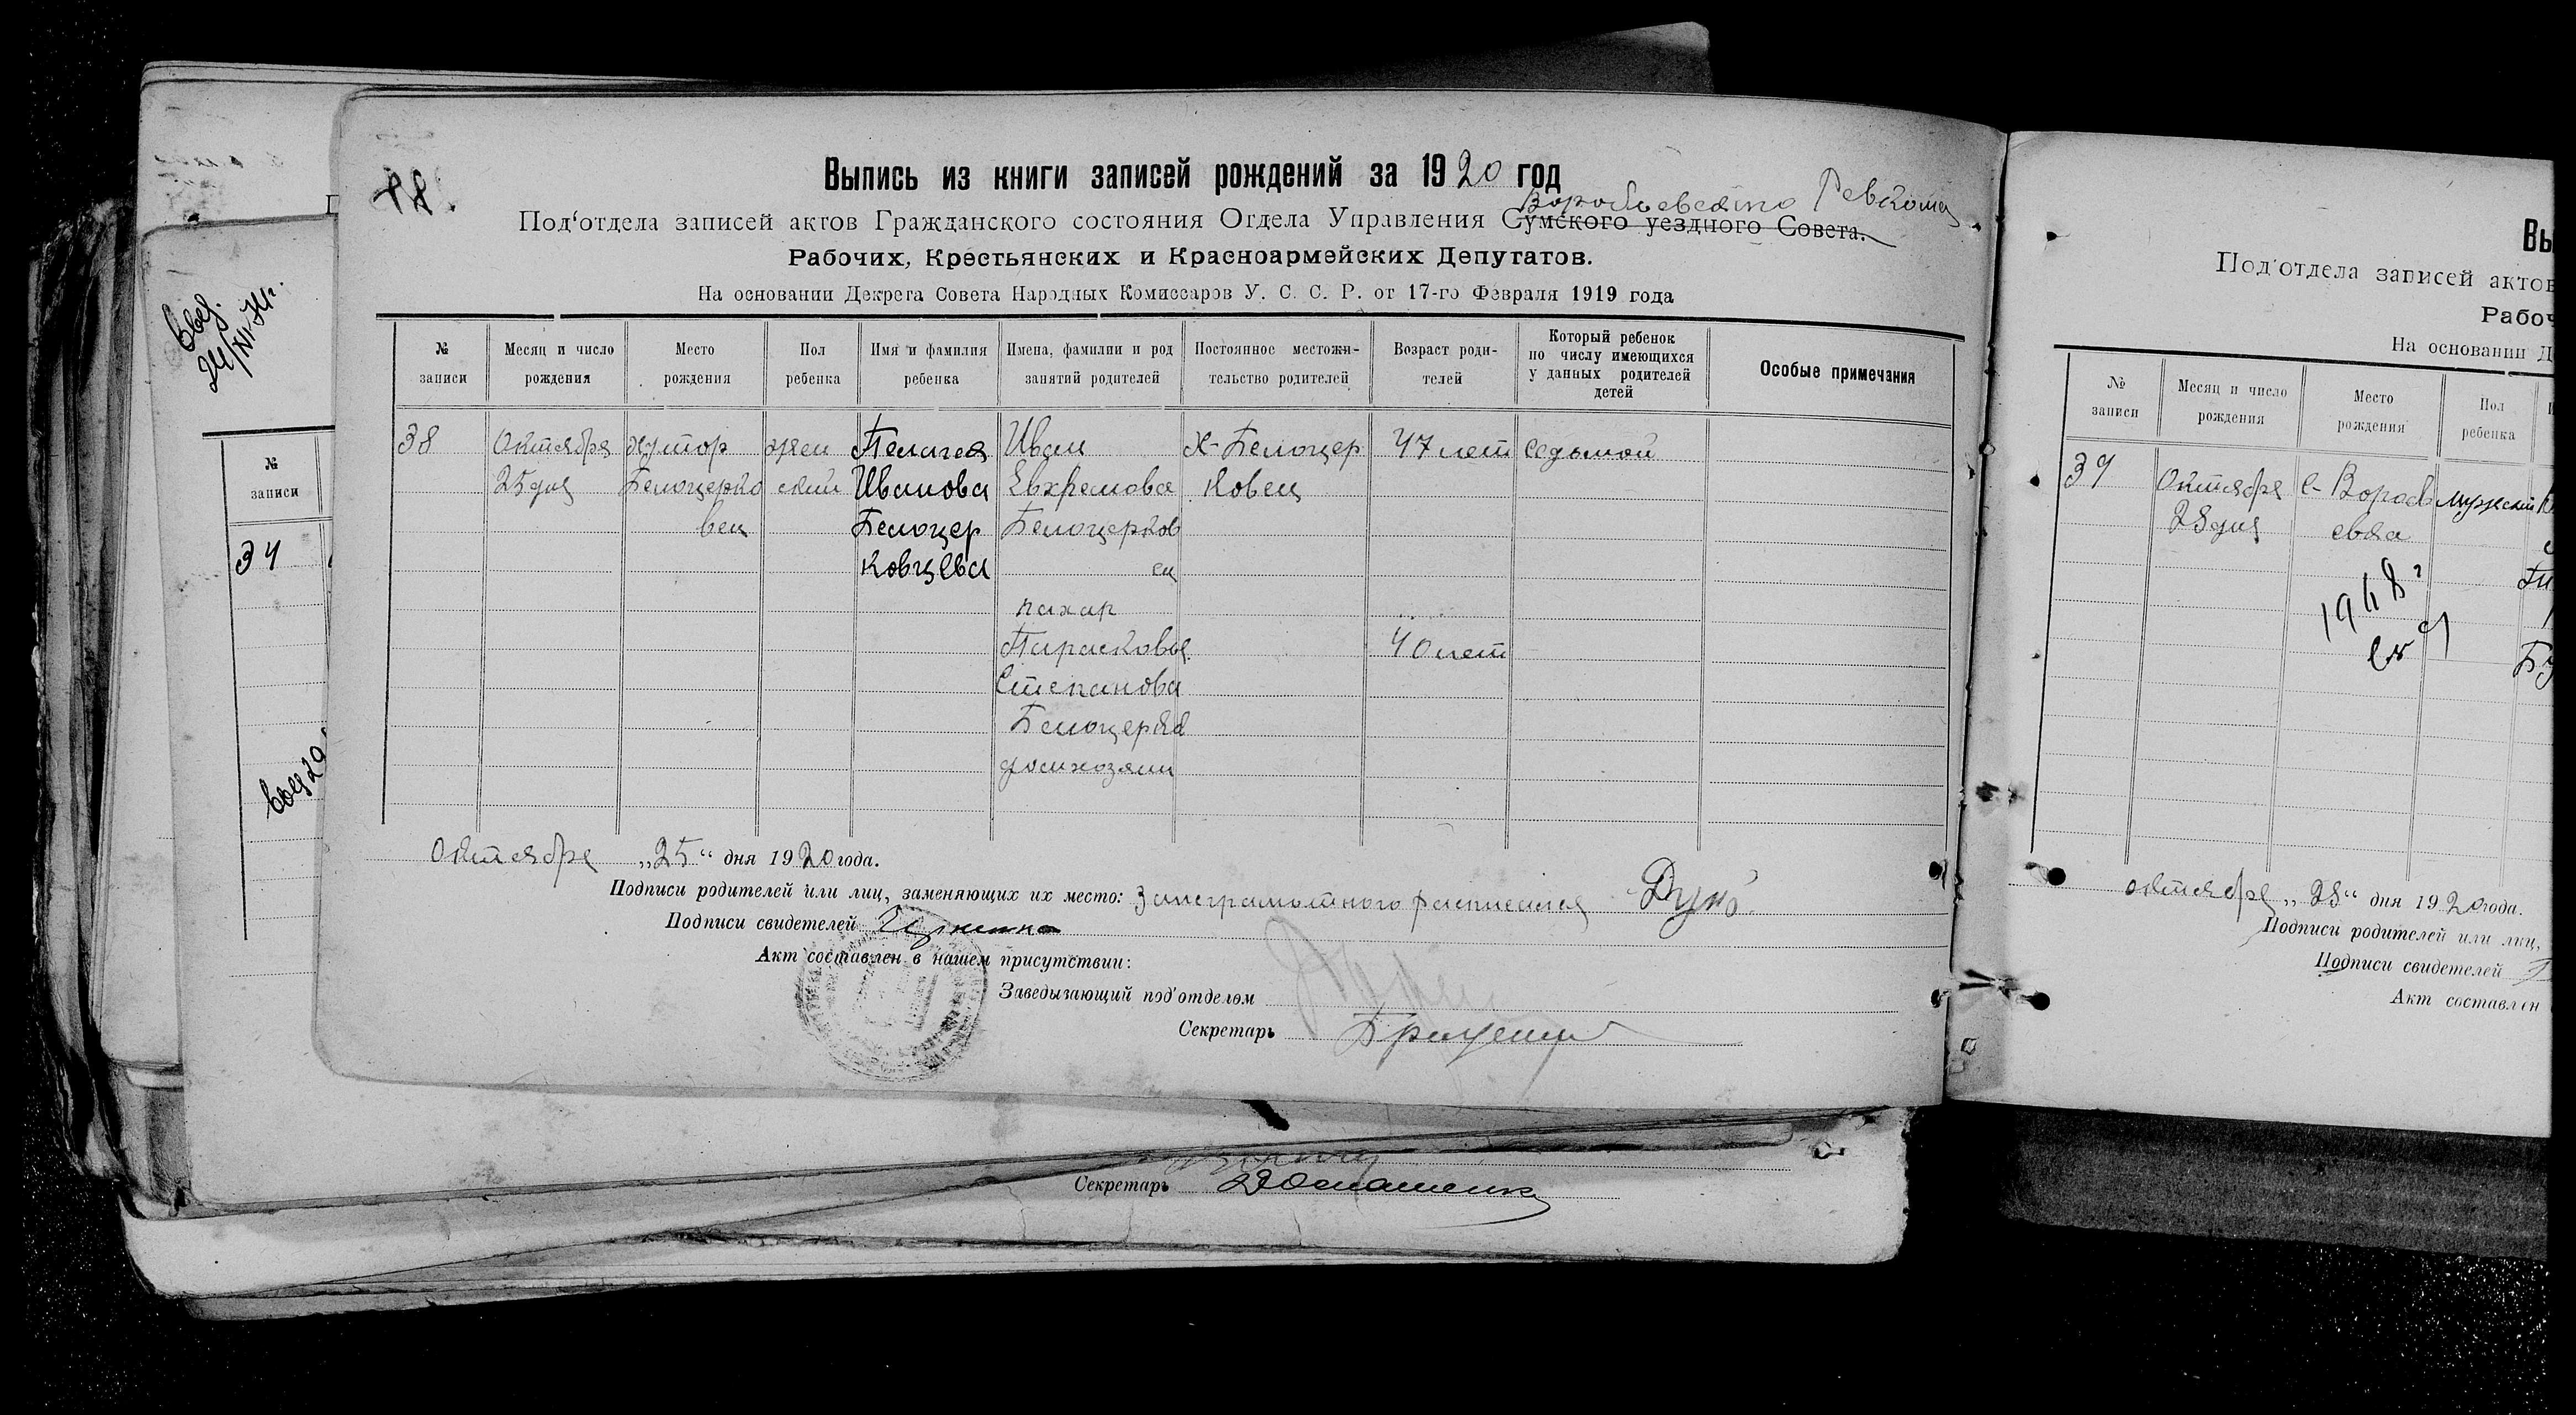 18.
Выпись из книги записей рождений за 1920 год
Воробьевского Ревкома
Под'отдела записей актов Гражданского состояния Отдела Управления Сумского уездного Совета.
Рабочих, Крестьянских и Красноармейских Депутатов.
На основании Декрета Совета Народных Комиссаров У. С. С. Р. от 17-го Февраля 1919 года
№ записи
Месяц и число рождения
Место рождения
Пол ребенка
Имя и фамилия ребенка
Имена, фамилии и род занятий родителей
Постоянное местожительство родителей
Возраст родителей
Который ребенок по числу имеющихся у данных родителей детей
Особые примечания
38 Октября хутор жен Пелагея Иван х-Белоцер 47 лет седьмой
25 дня Белоцерко ский Иванова Евхремова ковец
вец Белоцер Белоцерков
ковцева ец
пахар
Парасковья 40 лет
Степанова
Белоцерка
домхозяин
октября „25“ дня 1920 года.
Подписи родителей или лиц, заменяющих их место: За неграмотного расписался
Подписи свидетелей
Акт составлен в нашем присутствии:
Заведывающий под'отделом
Секретарь
Секретарь
№ записи
34
Вы
Под'отдела записей актов
Рабоч
На основании Д
№ записи
Месяц и число рождения
Место рождения
Пол ребенка
39 Октября с- Вороб мужской
28 дня евка
октября „28“ дня 1920 года.
Подписи родителей или лиц,
Подписи свидетелей
Акт составлен